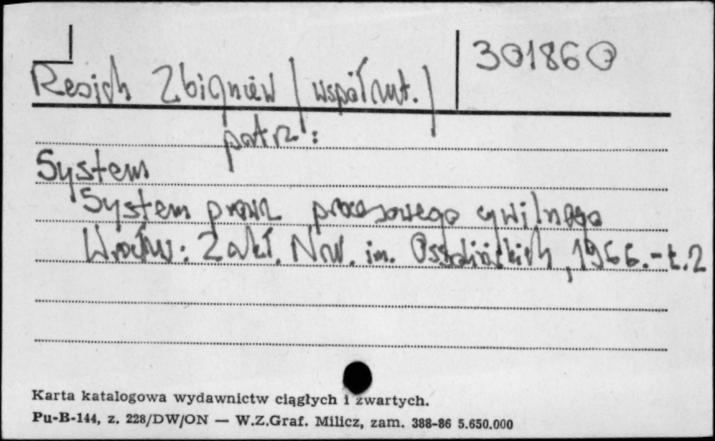 301860
Resich Zbigniew /współaut./
patrz:
System
System prawa procesowego cywilnego
Wrocław: Zakł. Nar. im. Ossolińskich, 1966.-t.2
Karta katalogowa wydawnictw ciągłych i zwartych.
Pu-B-144, z. 228/DW/ON — W.Z.Graf. Milicz, zam. 388-86 5.650.000